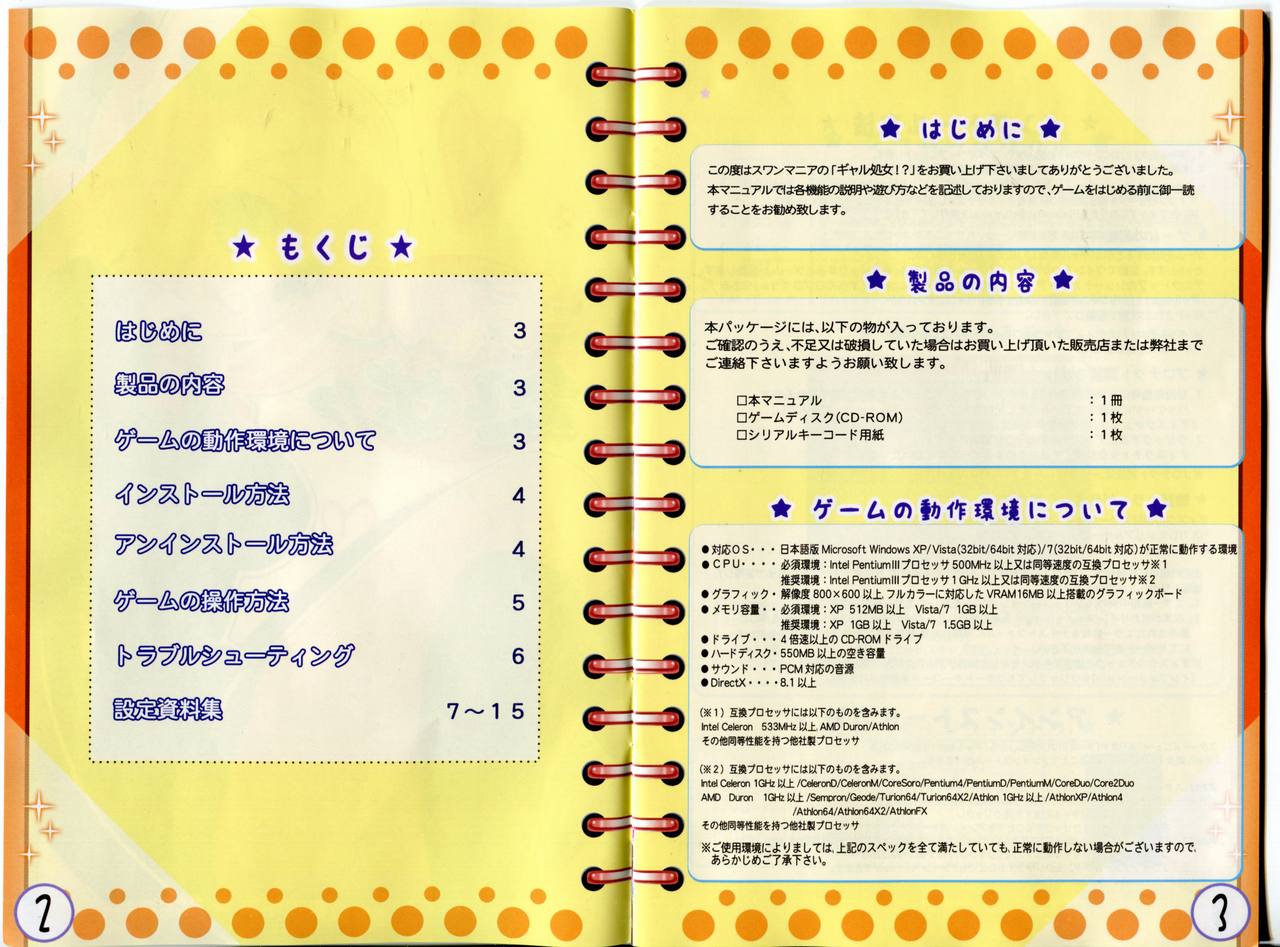 ★ もくじ ★
はじめに 3
製品の内容 3
ゲームの動作環境について 3
インストール方法 4
アンインストール方法 4
ゲームの操作方法 5
トラブルシューティング 6
設定資料集 7～15
2
★ はじめに ★
この度はスワンマニアの「ギャル処女！？」をお買い上げ下さいましてありがとうございました。
本マニュアルでは各機能の説明や遊び方などを記述しておりますので、ゲームをはじめる前に御一読
することをお勧め致します。
★ 製品の内容 ★
本パッケージには、以下の物が入っております。
ご確認のうえ、不足又は破損していた場合はお買い上げ頂いた販売店または弊社まで
ご連絡下さいますようお願い致します。
□本マニュアル ：1冊
□ゲームディスク(CD-ROM) ：1枚
□シリアルキーコード用紙 ：1枚
★ ゲームの動作環境について ★
●対応OS・・・日本語版 Microsoft Windows XP/Vista(32bit/64bit 対応)/7(32bit/64bit 対応)が正常に動作する環境
●CPU・・・・必須環境：Intel PentiumⅢプロセッサ 500MHz 以上又は同等速度の互換プロセッサ※1
推奨環境：Intel PentiumⅢプロセッサ 1GHz 以上又は同等速度の互換プロセッサ※2
●グラフィック・解像度 800×600 以上, フルカラーに対応した VRAM16MB 以上搭載のグラフィックボード
●メモリ容量・・必須環境：XP 512MB 以上 Vista/7 1GB 以上
推奨環境：XP 1GB 以上 Vista/7 1.5GB 以上
●ドライブ・・・4 倍速以上の CD-ROM ドライブ
●ハードディスク・550MB 以上の空き容量
●サウンド・・・PCM 対応の音源
●DirectX・・・・8.1 以上
(※1) 互換プロセッサには以下のものを含みます。
Intel Celeron 533MHz 以上, AMD Duron/Athlon
その他同等性能を持つ他社製プロセッサ
(※2) 互換プロセッサには以下のものを含みます。
Intel Celeron 1GHz 以上 /CeleronD/CeleronM/CoreSoro/Pentium4/PentiumD/PentiumM/CoreDuo/Core2Duo
AMD Duron 1GHz 以上 /Sempron/Geode/Turion64/Turion64X2/Athlon 1GHz 以上 /AthlonXP/Athlon4
/Athlon64/Athlon64X2/AthlonFX
その他同等性能を持つ他社製プロセッサ
※ご使用環境によりましては、上記のスペックを全て満たしていても、正常に動作しない場合がございますので、
あらかじめご了承下さい。
3